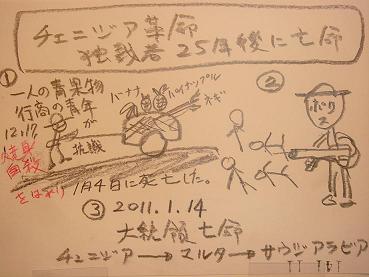 チェニジア革命
独裁者 25年後に亡命
①
一人の青果物
行商の青年が
12.17
焼身
自殺
をはかり
抗議
1月4日に死亡した。
バナナ
パイナップル
ネギ
②
ポリス
③ 2011.1.14
大統領亡命
チェニジア→マルタ→サウジアラビア